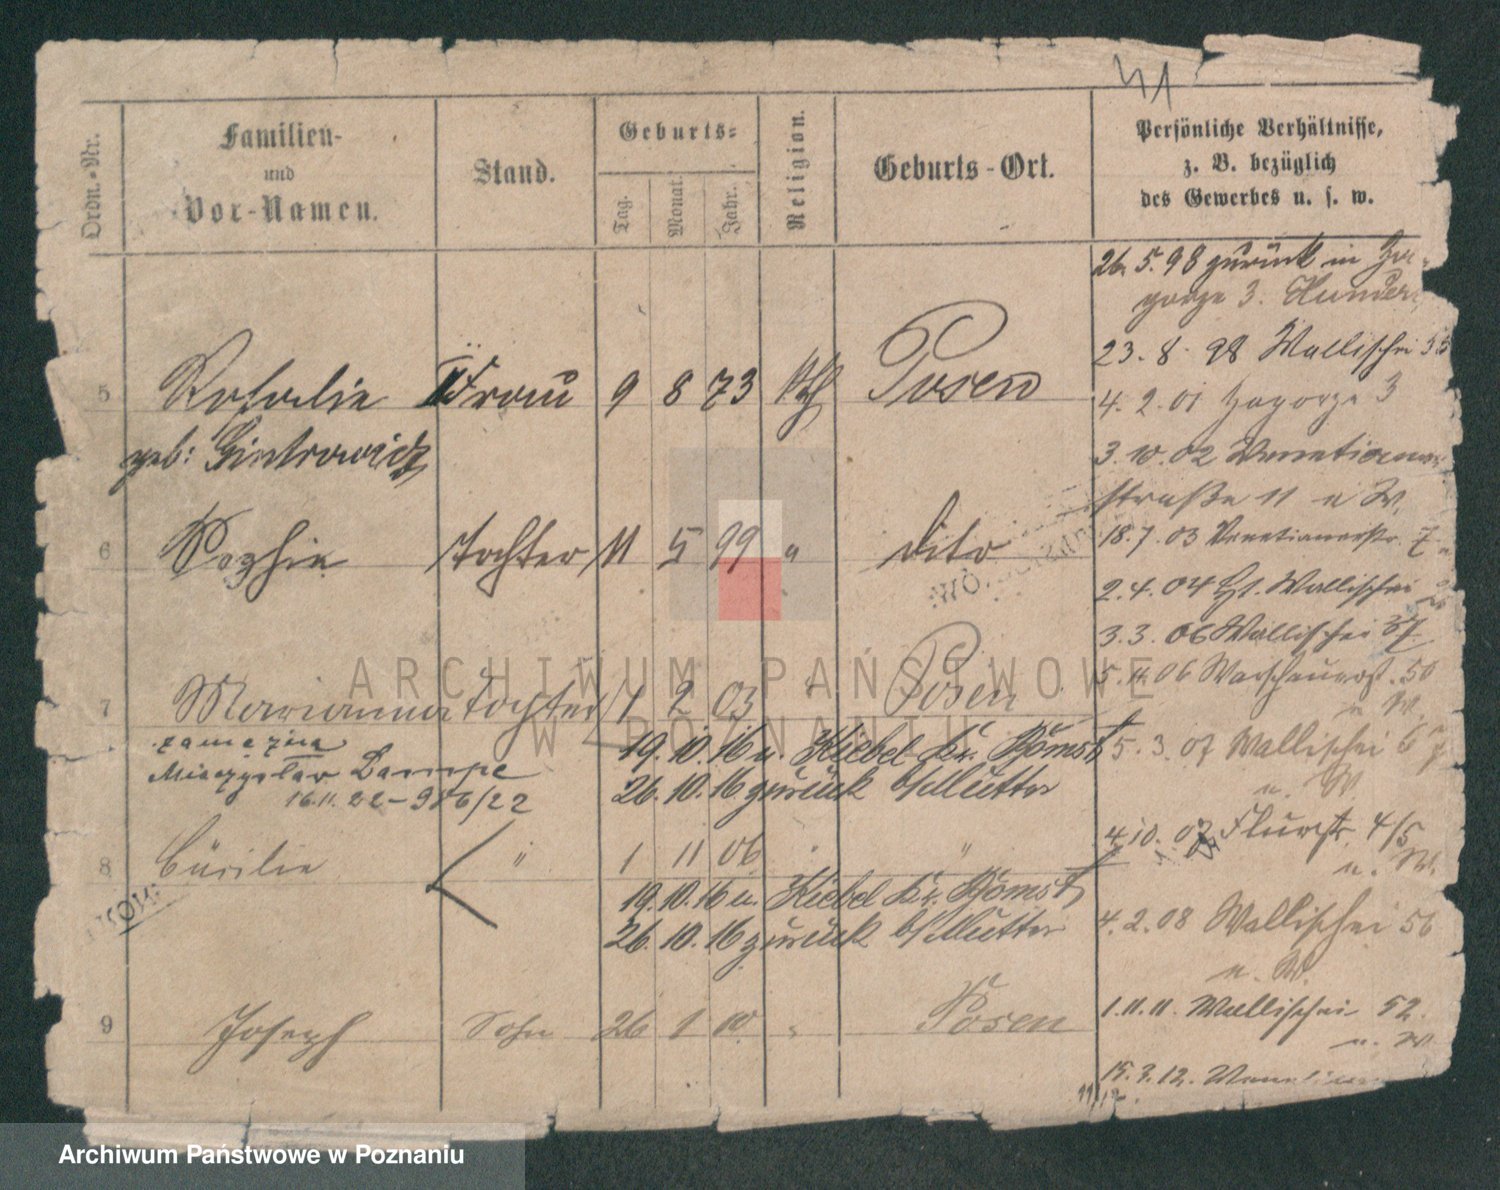 41
Ordn.-Nr.
Familien-
und
Vor-Namen.
Stand.
Geburts-
Tag.
Monat.
Jahr.
Religion.
Geburts-Ort.
Persönliche Verhältnisse,
z. B. bezüglich
des Gewerbes u. s. w.
26.5.98 zurück in Za-
gorze 3.
23.8.98 Wallischei
5 Rosalie II Frau 9 8 73 kth Posen
4.2.01 Zagorze 3
geb: Gintrowicz
3.10.02 Venetianer
straße 11 u W.
18.7.03 Venetianerstr. 7
6 Sophie Tochter 11 5 99 " dito
2.4.04 Wallischei
3.3.06 Wallischei 37
5.11.06 Warschauerst. 50
u W.
7 Marianna Tochter 1 2 03 " Posen
zamężna
Mieczysław Dampc
16.11.22 - 956/22
19.10.16 n. Kiebel Kr. Bomst
26.10.16 zurück b/Mutter
5.3.07 Wallischei 67
u. W.
4.10.07 Flurstr. 4/5
u. W.
8 Cäcilie " 1 11 06 " "
19.10.16 n. Kiebel Kr. Bomst
26.10.16 zurück b/Mutter
4.2.08 Wallischei 56
u. W.
9 Joseph Sohn 26 1 10 " Posen
1.11.11. Wallischei 52.
u. W
15.3.12.
ARCHIWUM PAŃSTWOWE
W POZNANIU
Archiwum Państwowe w Poznaniu